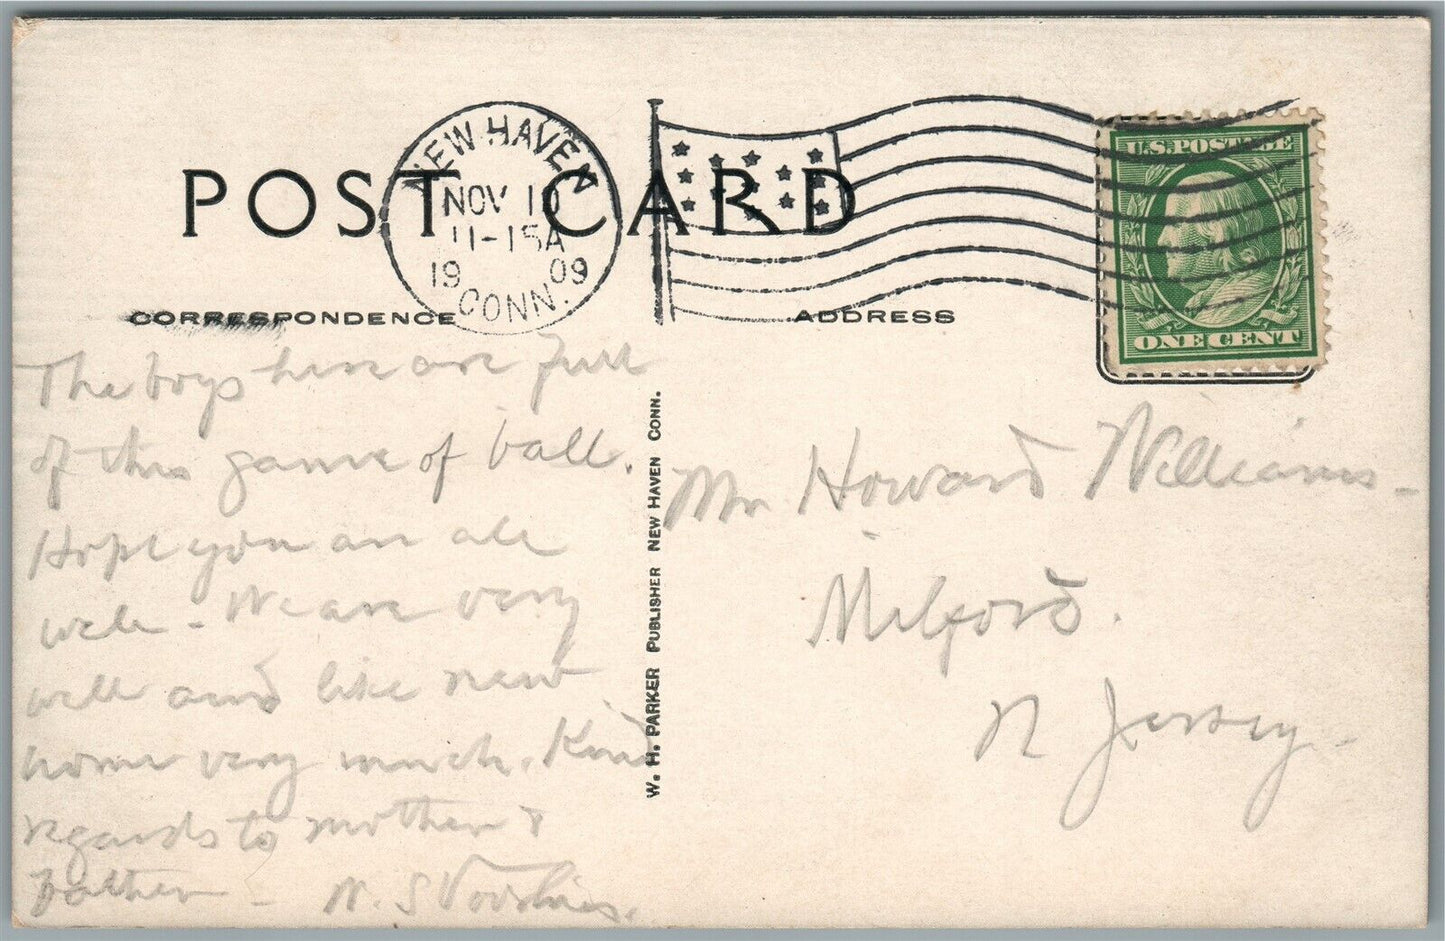 POST CARD
NEW HAVEN
NOV 10
11-15A
19 09
CONN.
U.S. POSTAGE
ONE CENT
CORRESPONDENCE
ADDRESS
The boys here are full
of this game of ball.
Hope you are all
well - We are very
well and like new
home very much. Kind
regards to mother &
Father - N. S Voorhies.
W. H. PARKER PUBLISHER NEW HAVEN CONN.
Mr Howard Williams -
Milford.
N Jersey -